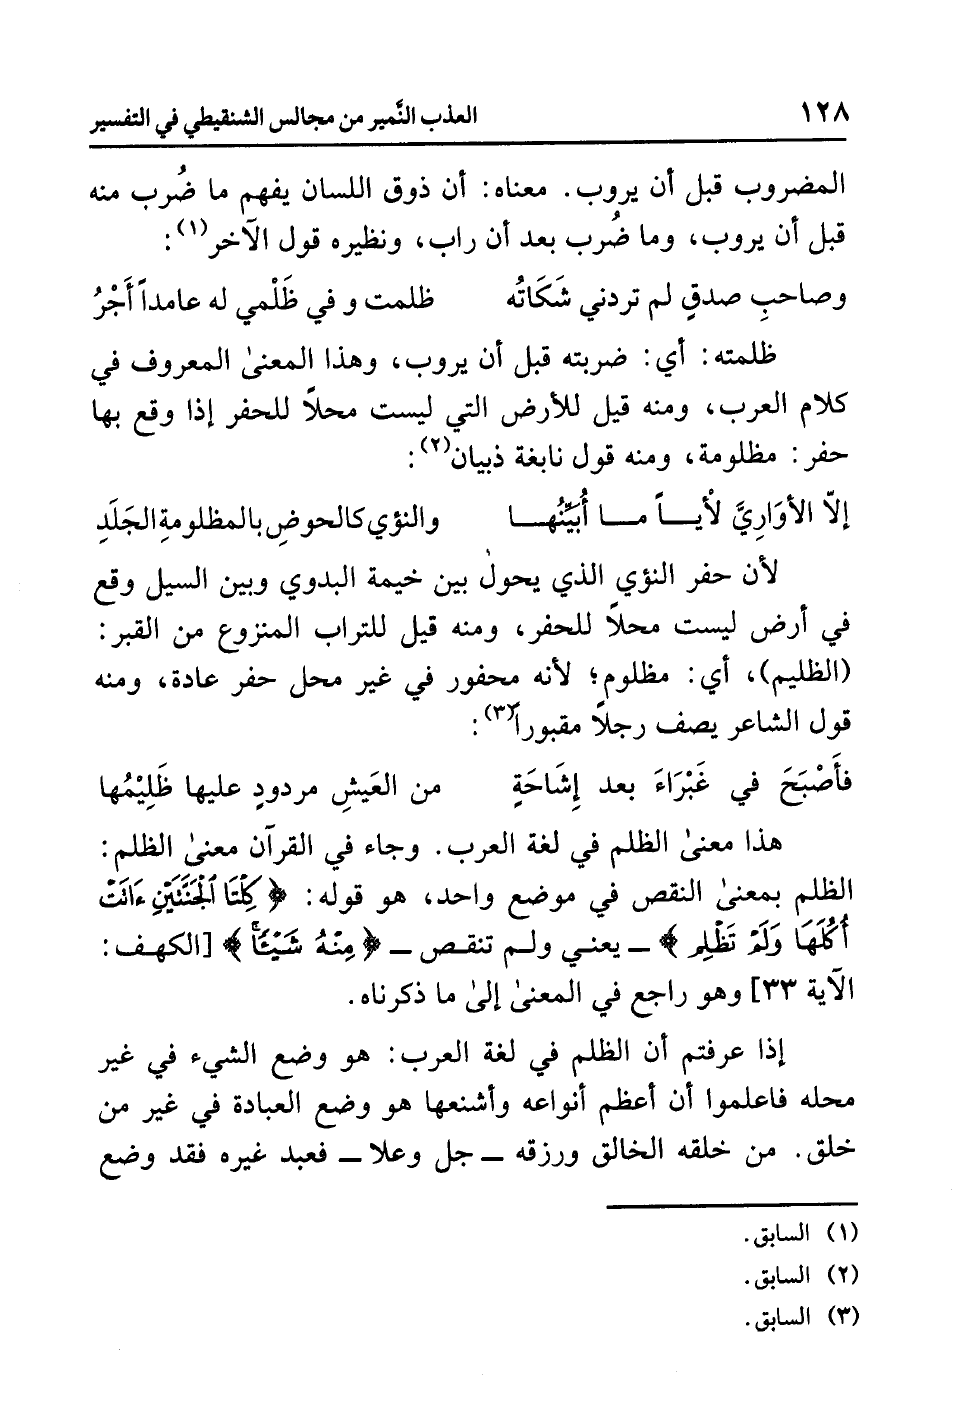 ١٢٨ العذب النَّمير من مجالس الشنقيطي في التفسير
المضروب قبل أن يروب. معناه: أن ذوق اللسان يفهم ما ضُرب منه
قبل أن يروب، وما ضُرب بعد أن راب، ونظيره قول الآخر(١):
وصاحبِ صدقٍ لم تردني شَكَاتُه ظلمت و في ظَلْمي له عامداً أَجْرُ
ظلمته: أي: ضربته قبل أن يروب، وهذا المعنىٰ المعروف في
كلام العرب، ومنه قيل للأرض التي ليست محلاً للحفر إذا وقع بها
حفر: مظلومة، ومنه قول نابغة ذبيان(٢):
إلاّ الأوَارِيَّ لأْيـــاً مـــا أُبيِّنُهــا والنؤي كالحوضِ بالمظلومةِ الجَلَدِ
لأن حفر النؤي الذي يحول بين خيمة البدوي وبين السيل وقع
في أرض ليست محلاً للحفر، ومنه قيل للتراب المنزوع من القبر:
(الظليم)، أي: مظلوم؛ لأنه محفور في غير محل حفر عادة، ومنه
قول الشاعر يصف رجلاً مقبوراً(٣):
فأَصْبَحَ في غَبْرَاءَ بعد إِشَاحَةٍ من العَيشِ مردودٍ عليها ظَلِيْمُها
هذا معنىٰ الظلم في لغة العرب. وجاء في القرآن معنىٰ الظلم:
الظلم بمعنىٰ النقص في موضع واحد، هو قوله: ﴿ كِلْتَا ٱلْجَنَّتَيْنِ ءَاتَتْ
أُكُلَهَا وَلَمْ تَظْلِم ﴾ ــ يعنـي ولـم تنقـص ــ ﴿ مِنْهُ شَيْئًا ﴾ [الكهـف:
الآية ٣٣] وهو راجع في المعنىٰ إلىٰ ما ذكرناه.
إذا عرفتم أن الظلم في لغة العرب: هو وضع الشيء في غير
محله فاعلموا أن أعظم أنواعه وأشنعها هو وضع العبادة في غير من
خلق. من خلقه الخالق ورزقه ــ جل وعلا ــ فعبد غيره فقد وضع
(١) السابق.
(٢) السابق.
(٣) السابق.